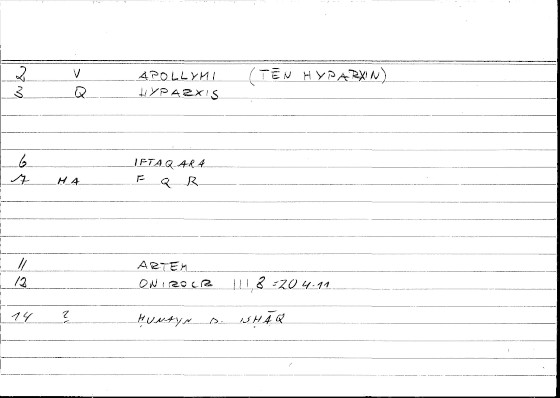 2 V APOLLYMI (TĒN HYPARXIN)
3 Q HYPARXIS
6 IFTAQARA
7 HA F Q R
11 ARTEM
12 ONIROCR III,8 =204.11
14 ? ḤUNAYN B. ISḤĀQ